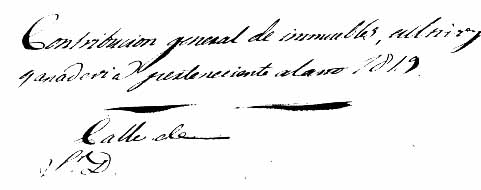 Contribucion general de inmuebles, cultivo y
ganaderia perteneciente al ano 1819
Calle de
Sr. D.